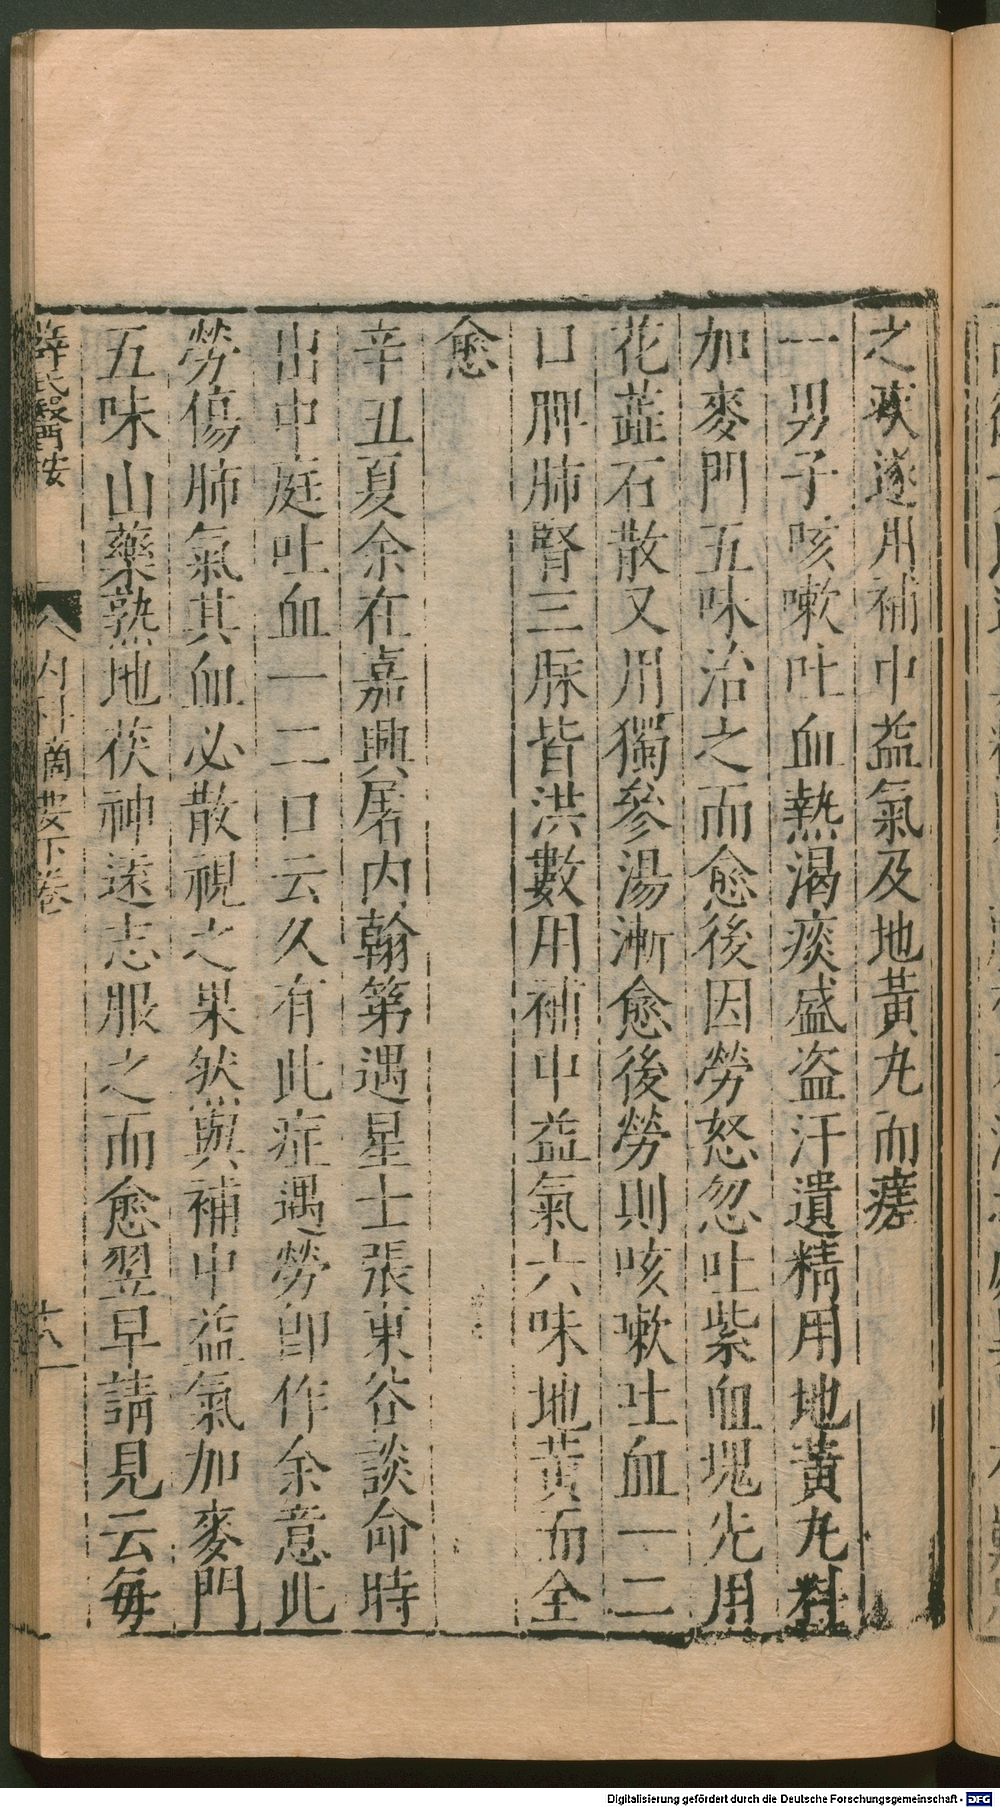 之疾遂用補中益氣及地黃丸而瘥
一男子咳嗽吐血熱渴痰盛盜汗遺精用地黃丸料
加麥門五味治之而愈後因勞怒忽吐紫血塊先用
花蕋石散又用獨參湯漸愈後勞則咳嗽吐血一二
口脾肺腎三脉皆洪數用補中益氣六味地黃而全
愈
辛丑夏余在嘉興屠內翰第遇星士張東谷談命時
出中庭吐血一二口云久有此症遇勞即作余意此
勞傷肺氣其血必散視之果然與補中益氣加麥門
五味山藥熟地茯神遠志服之而愈翌早請見云每
薛氏醫按
內科摘要下卷
十八
Digitalisierung gefördert durch die Deutsche Forschungsgemeinschaft - DFG